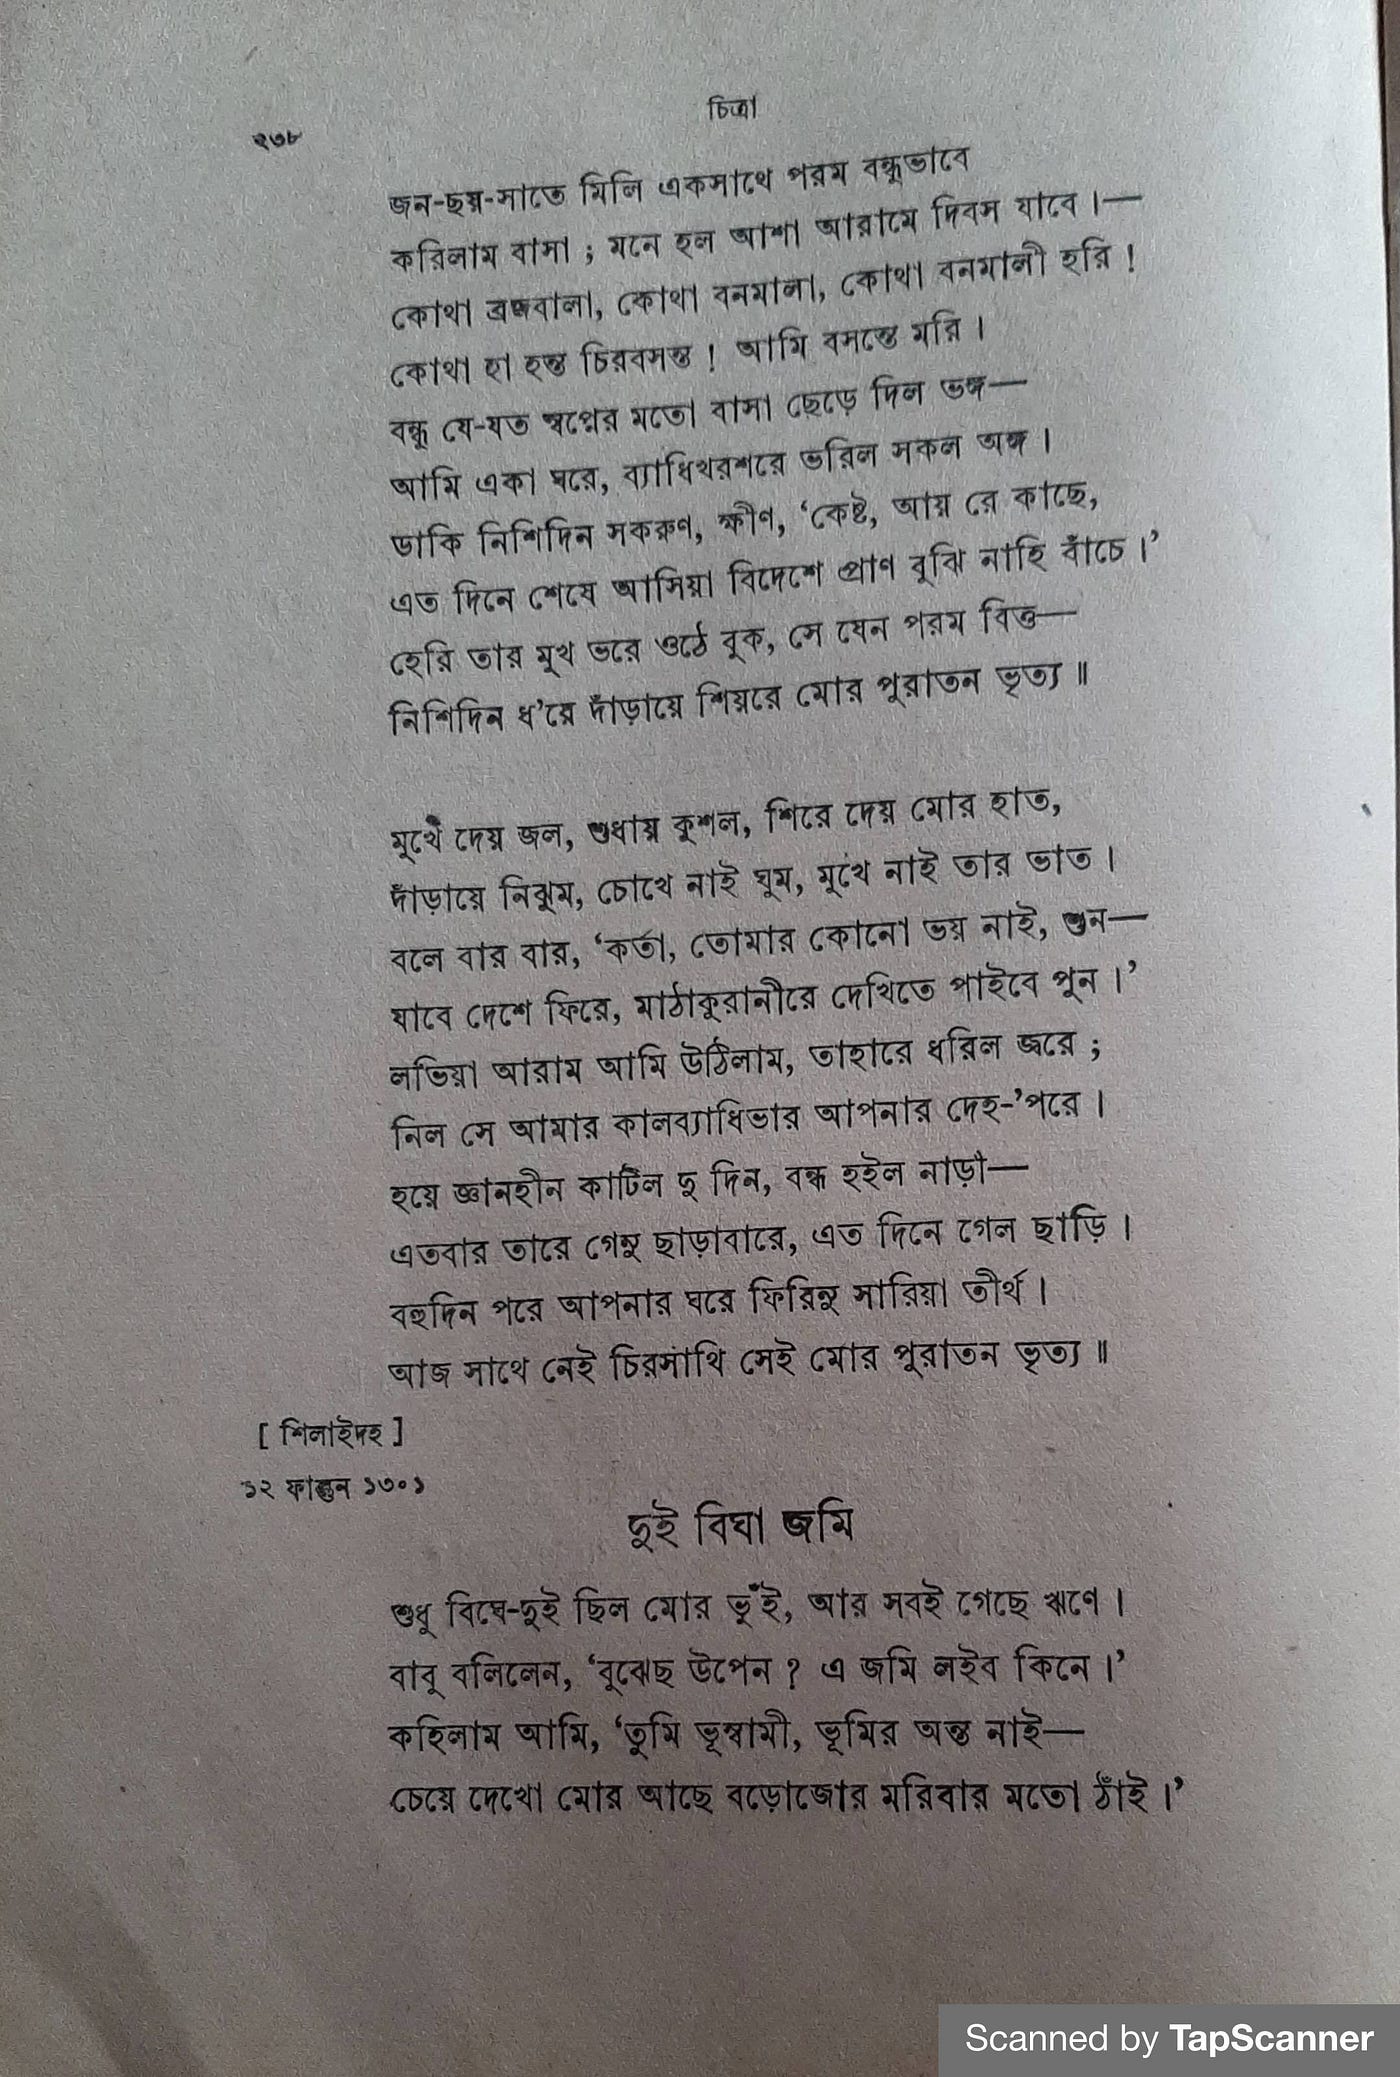 চিত্রা
২৩৮
জন-ছয়-সাতে মিলি একসাথে পরম বন্ধুভাবে
করিলাম বাসা ; মনে হল আশা আরামে দিবস যাবে ।—
কোথা ব্রজবালা, কোথা বনমালা, কোথা বনমালী হরি !
কোথা হা হন্ত চিরবসন্ত ! আমি বসন্তে মরি ।
বন্ধু যে-যত স্বপ্নের মতো বাসা ছেড়ে দিল ভঙ্গ—
আমি একা ঘরে, ব্যাধিখরশরে ভরিল সকল অঙ্গ ।
ডাকি নিশিদিন সকরুণ, ক্ষীণ, ‘কেষ্ট, আয় রে কাছে,
এত দিনে শেষে আসিয়া বিদেশে প্রাণ বুঝি নাহি বাঁচে ।’
হেরি তার মুখ ভরে ওঠে বুক, সে যেন পরম বিত্ত—
নিশিদিন ধ’রে দাঁড়ায়ে শিয়রে মোর পুরাতন ভৃত্য ॥
মুখে দেয় জল, শুধায় কুশল, শিরে দেয় মোর হাত,
দাঁড়ায়ে নিঝুম, চোখে নাই ঘুম, মুখে নাই তার ভাত ।
বলে বার বার, ‘কর্তা, তোমার কোনো ভয় নাই, শুন—
যাবে দেশে ফিরে, মাঠাকুরানীরে দেখিতে পাইবে পুন ।’
লভিয়া আরাম আমি উঠিলাম, তাহারে ধরিল জ্বরে ;
নিল সে আমার কালব্যাধিভার আপনার দেহ-’পরে ।
হয়ে জ্ঞানহীন কাটিল দু দিন, বন্ধ হইল নাড়ী—
এতবার তারে গেনু ছাড়াবারে, এত দিনে গেল ছাড়ি ।
বহুদিন পরে আপনার ঘরে ফিরিনু সারিয়া তীর্থ ।
আজ সাথে নেই চিরসাথি সেই মোর পুরাতন ভৃত্য ॥
[ শিলাইদহ ]
১২ ফাল্গুন ১৩০১
দুই বিঘা জমি
শুধু বিঘে-দুই ছিল মোর ভুঁই, আর সবই গেছে ঋণে ।
বাবু বলিলেন, ‘বুঝেছ উপেন ? এ জমি লইব কিনে ।’
কহিলাম আমি, ‘তুমি ভূস্বামী, ভূমির অন্ত নাই—
চেয়ে দেখো মোর আছে বড়োজোর মরিবার মতো ঠাঁই ।’
Scanned by TapScanner